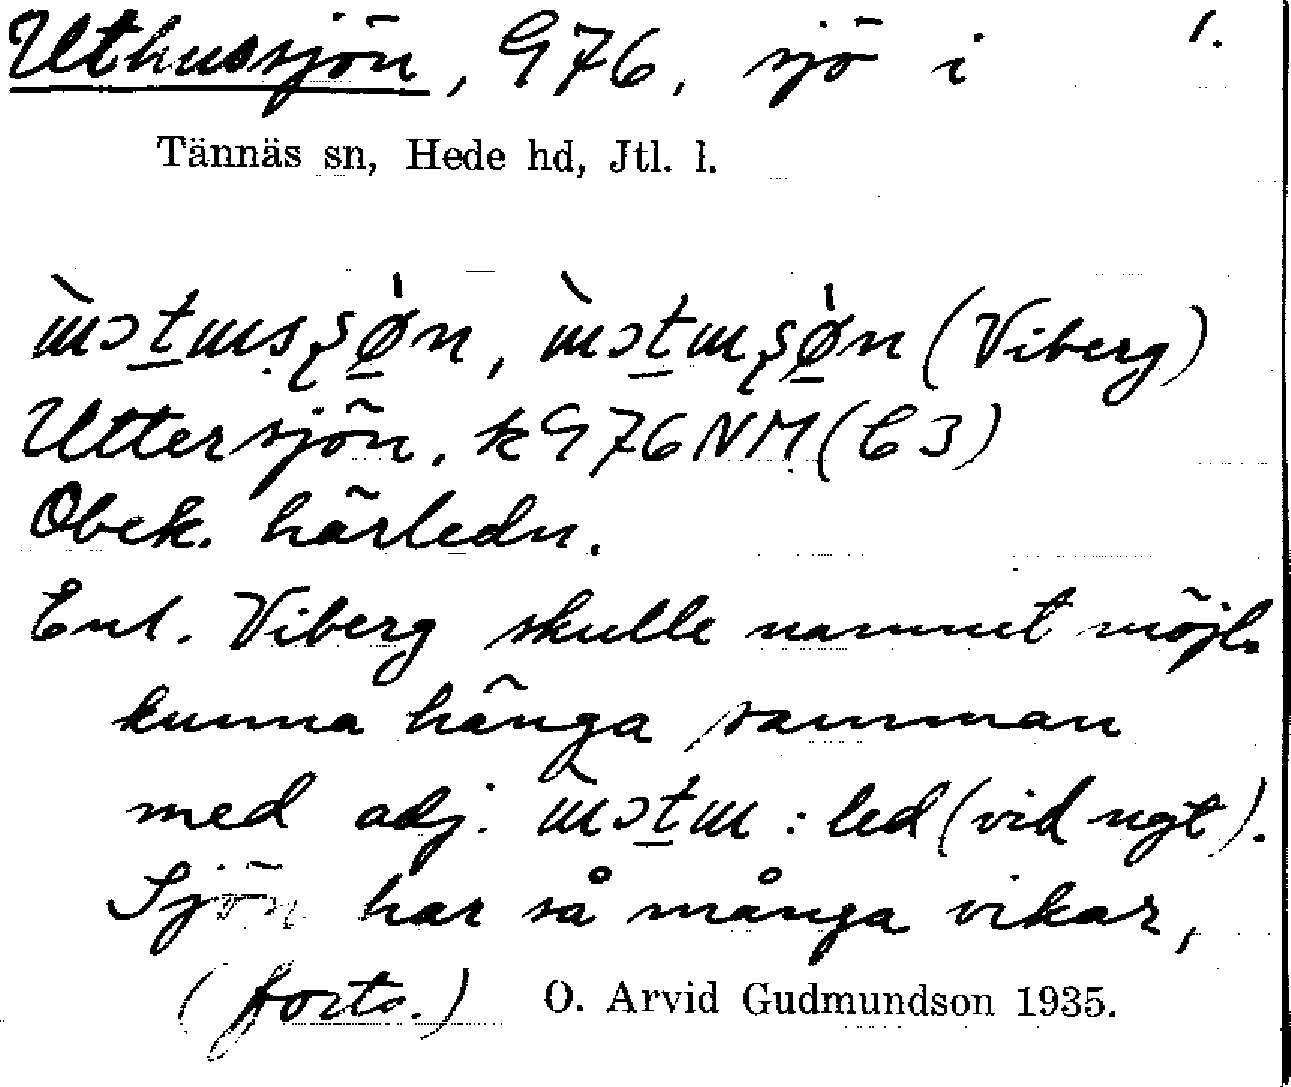 Uthussjön, G76, sjö i 1.
Tännäs sn, Hede hd, Jtl. l.
(Viberg)
Uttersjön. k G76NM(C3)
Obek. härledn.
Enl. Viberg skulle namnet möjl.
kunna hänga samman
med adj. : led (vid ngt).
Sjön har så många vikar,
(forts.) O. Arvid Gudmundson 1935.